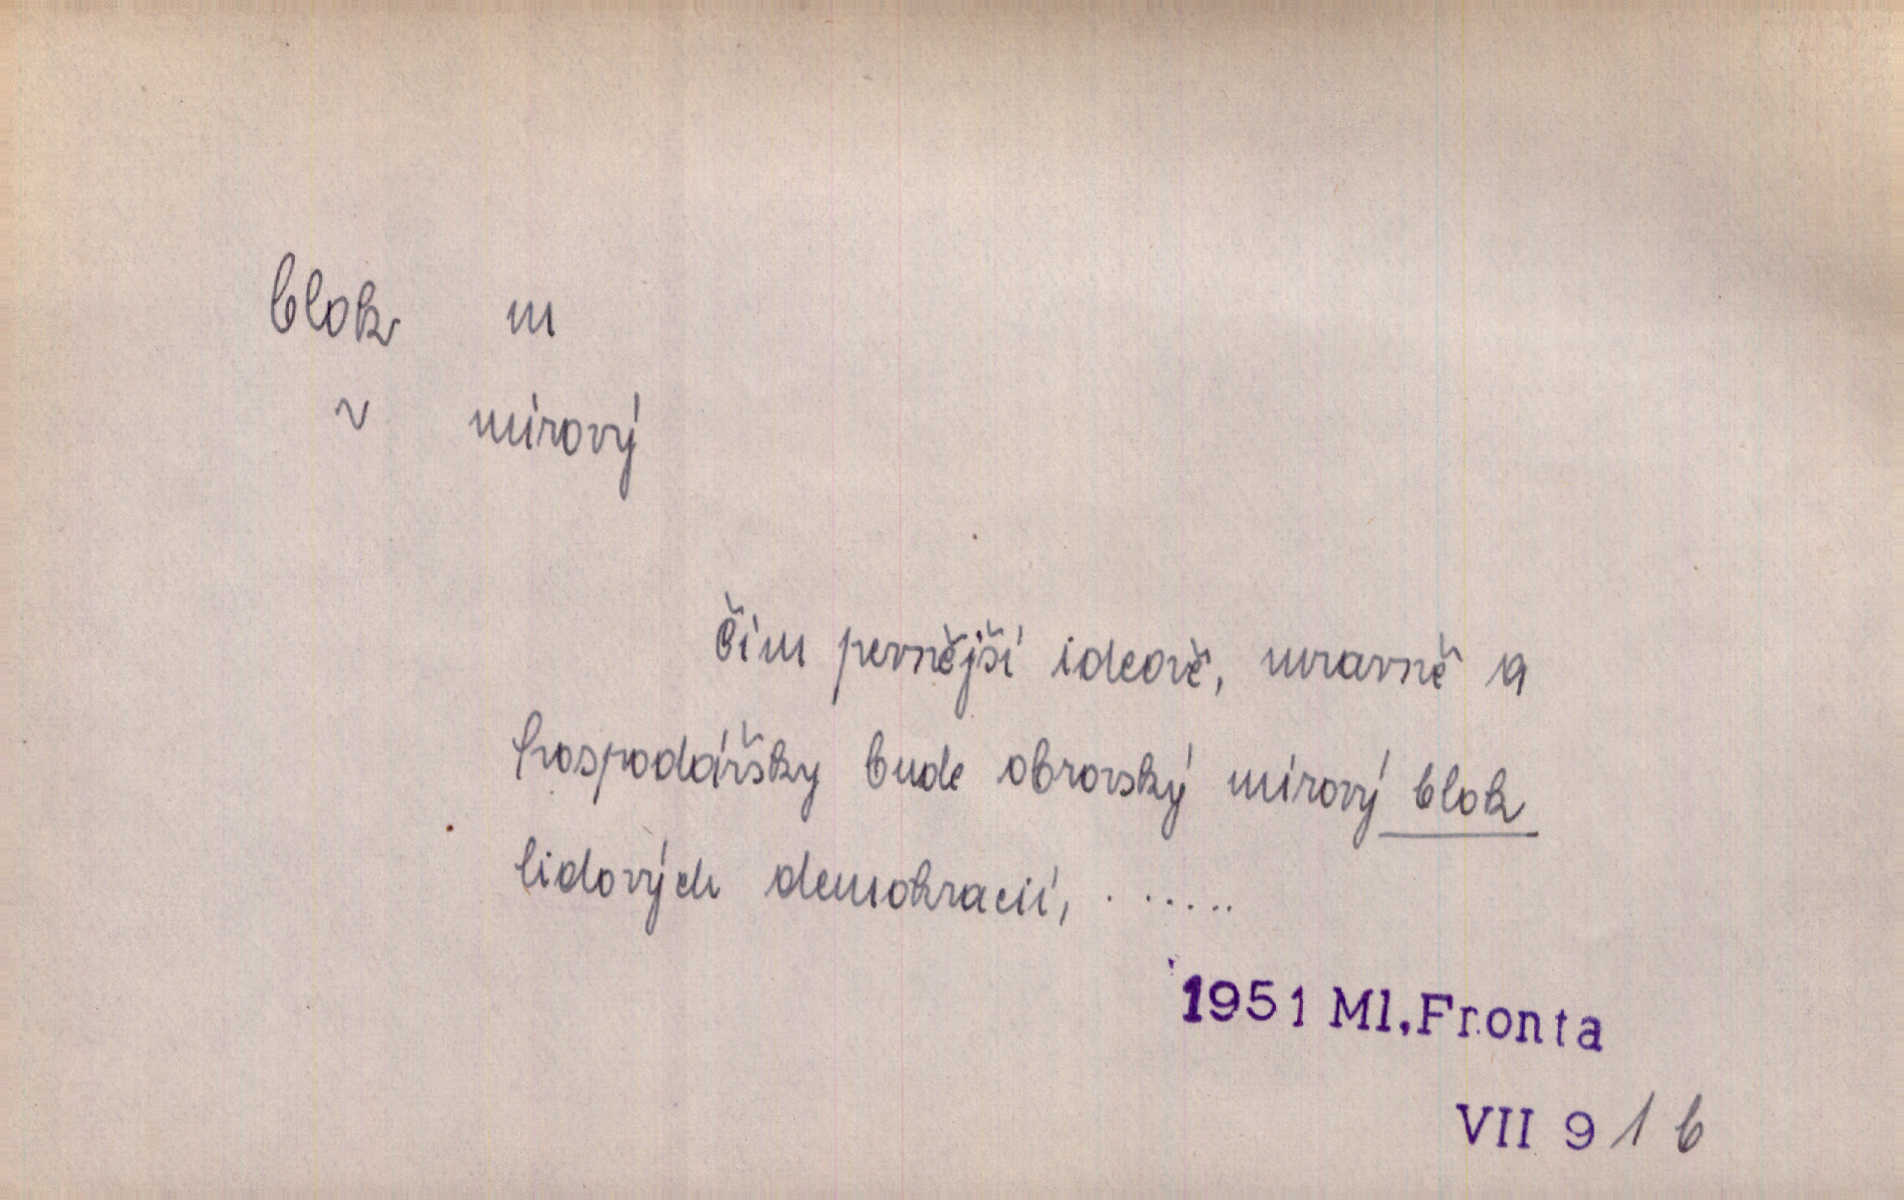 blok m
~ mírový
čím pevnější ideově, mravně a
hospodářsky bude obrovský mírový blok
lidových demokracií, .......
1951 Ml. Fronta
VII 9 1 b